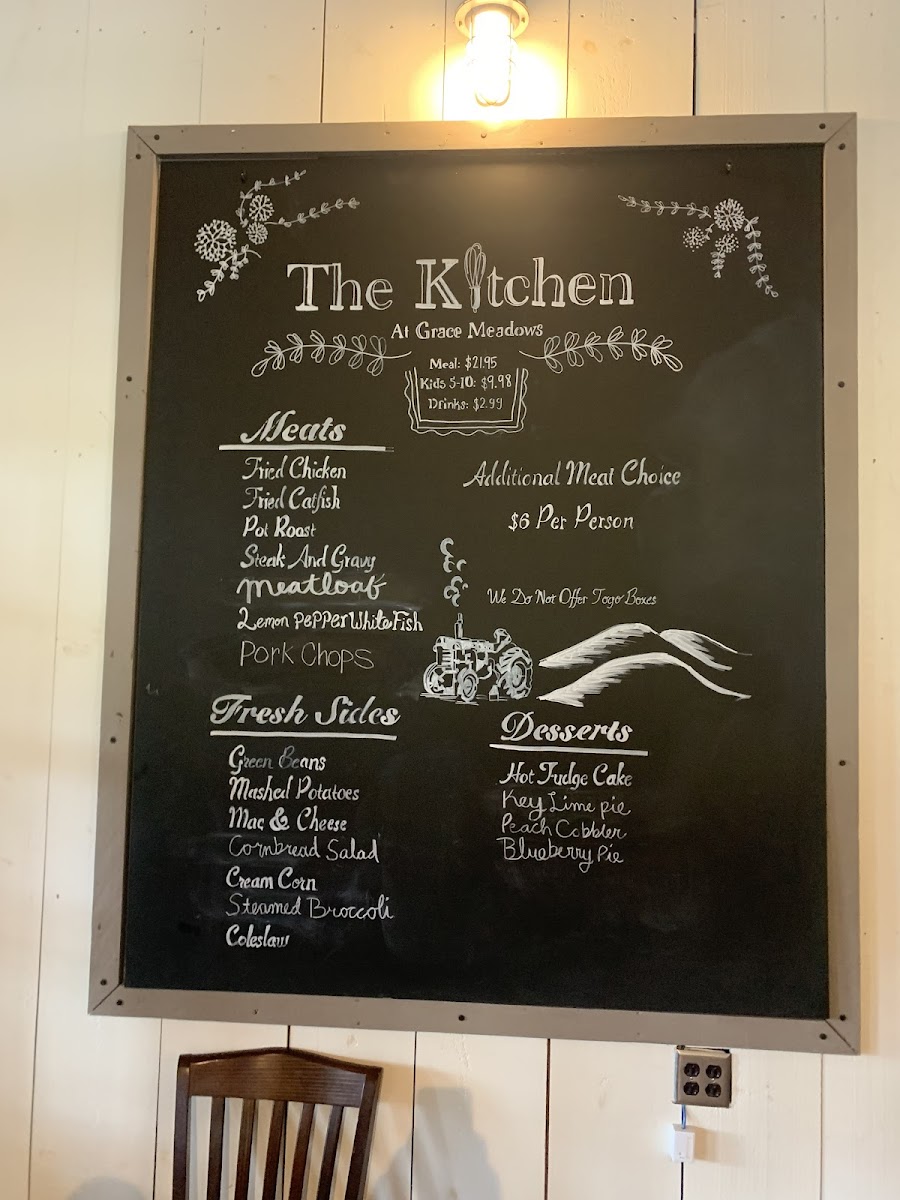 The Kitchen
At Grace Meadows
Meal: $21.95
Kids 5-10: $9.98
Drinks: $2.99
Meats
Fried Chicken
Fried Catfish
Pot Roast
Steak And Gravy
Meatloaf
Lemon PePPer White Fish
Pork Chops
Additional Meat Choice
$6 Per Person
We Do Not Offer Togo Boxes
Fresh Sides
Green Beans
Mashed Potatoes
Mac & Cheese
Cornbread Salad
Cream Corn
Steamed Broccoli
Coleslaw
Desserts
Hot Fudge Cake
Key Lime pie
Peach Cobbler
Blueberry Pie